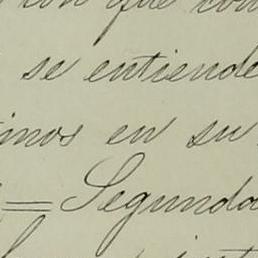 que con
se entiende
inos en su
= Segunda